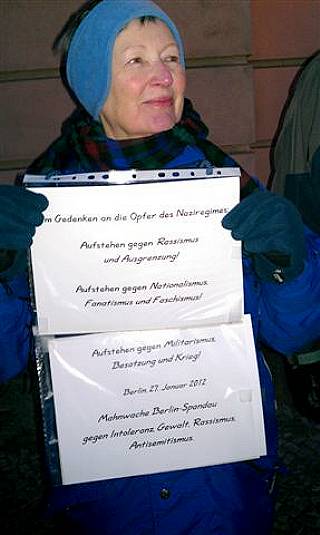 Im Gedenken an die Opfer des Naziregimes:
Aufstehen gegen Rassismus
und Ausgrenzung!
Aufstehen gegen Nationalismus,
Fanatismus und Faschismus!
Aufstehen gegen Militarismus,
Besatzung und Krieg!
Berlin, 27. Januar 2012
Mahnwache Berlin-Spandau
gegen Intoleranz, Gewalt, Rassismus,
Antisemitismus.